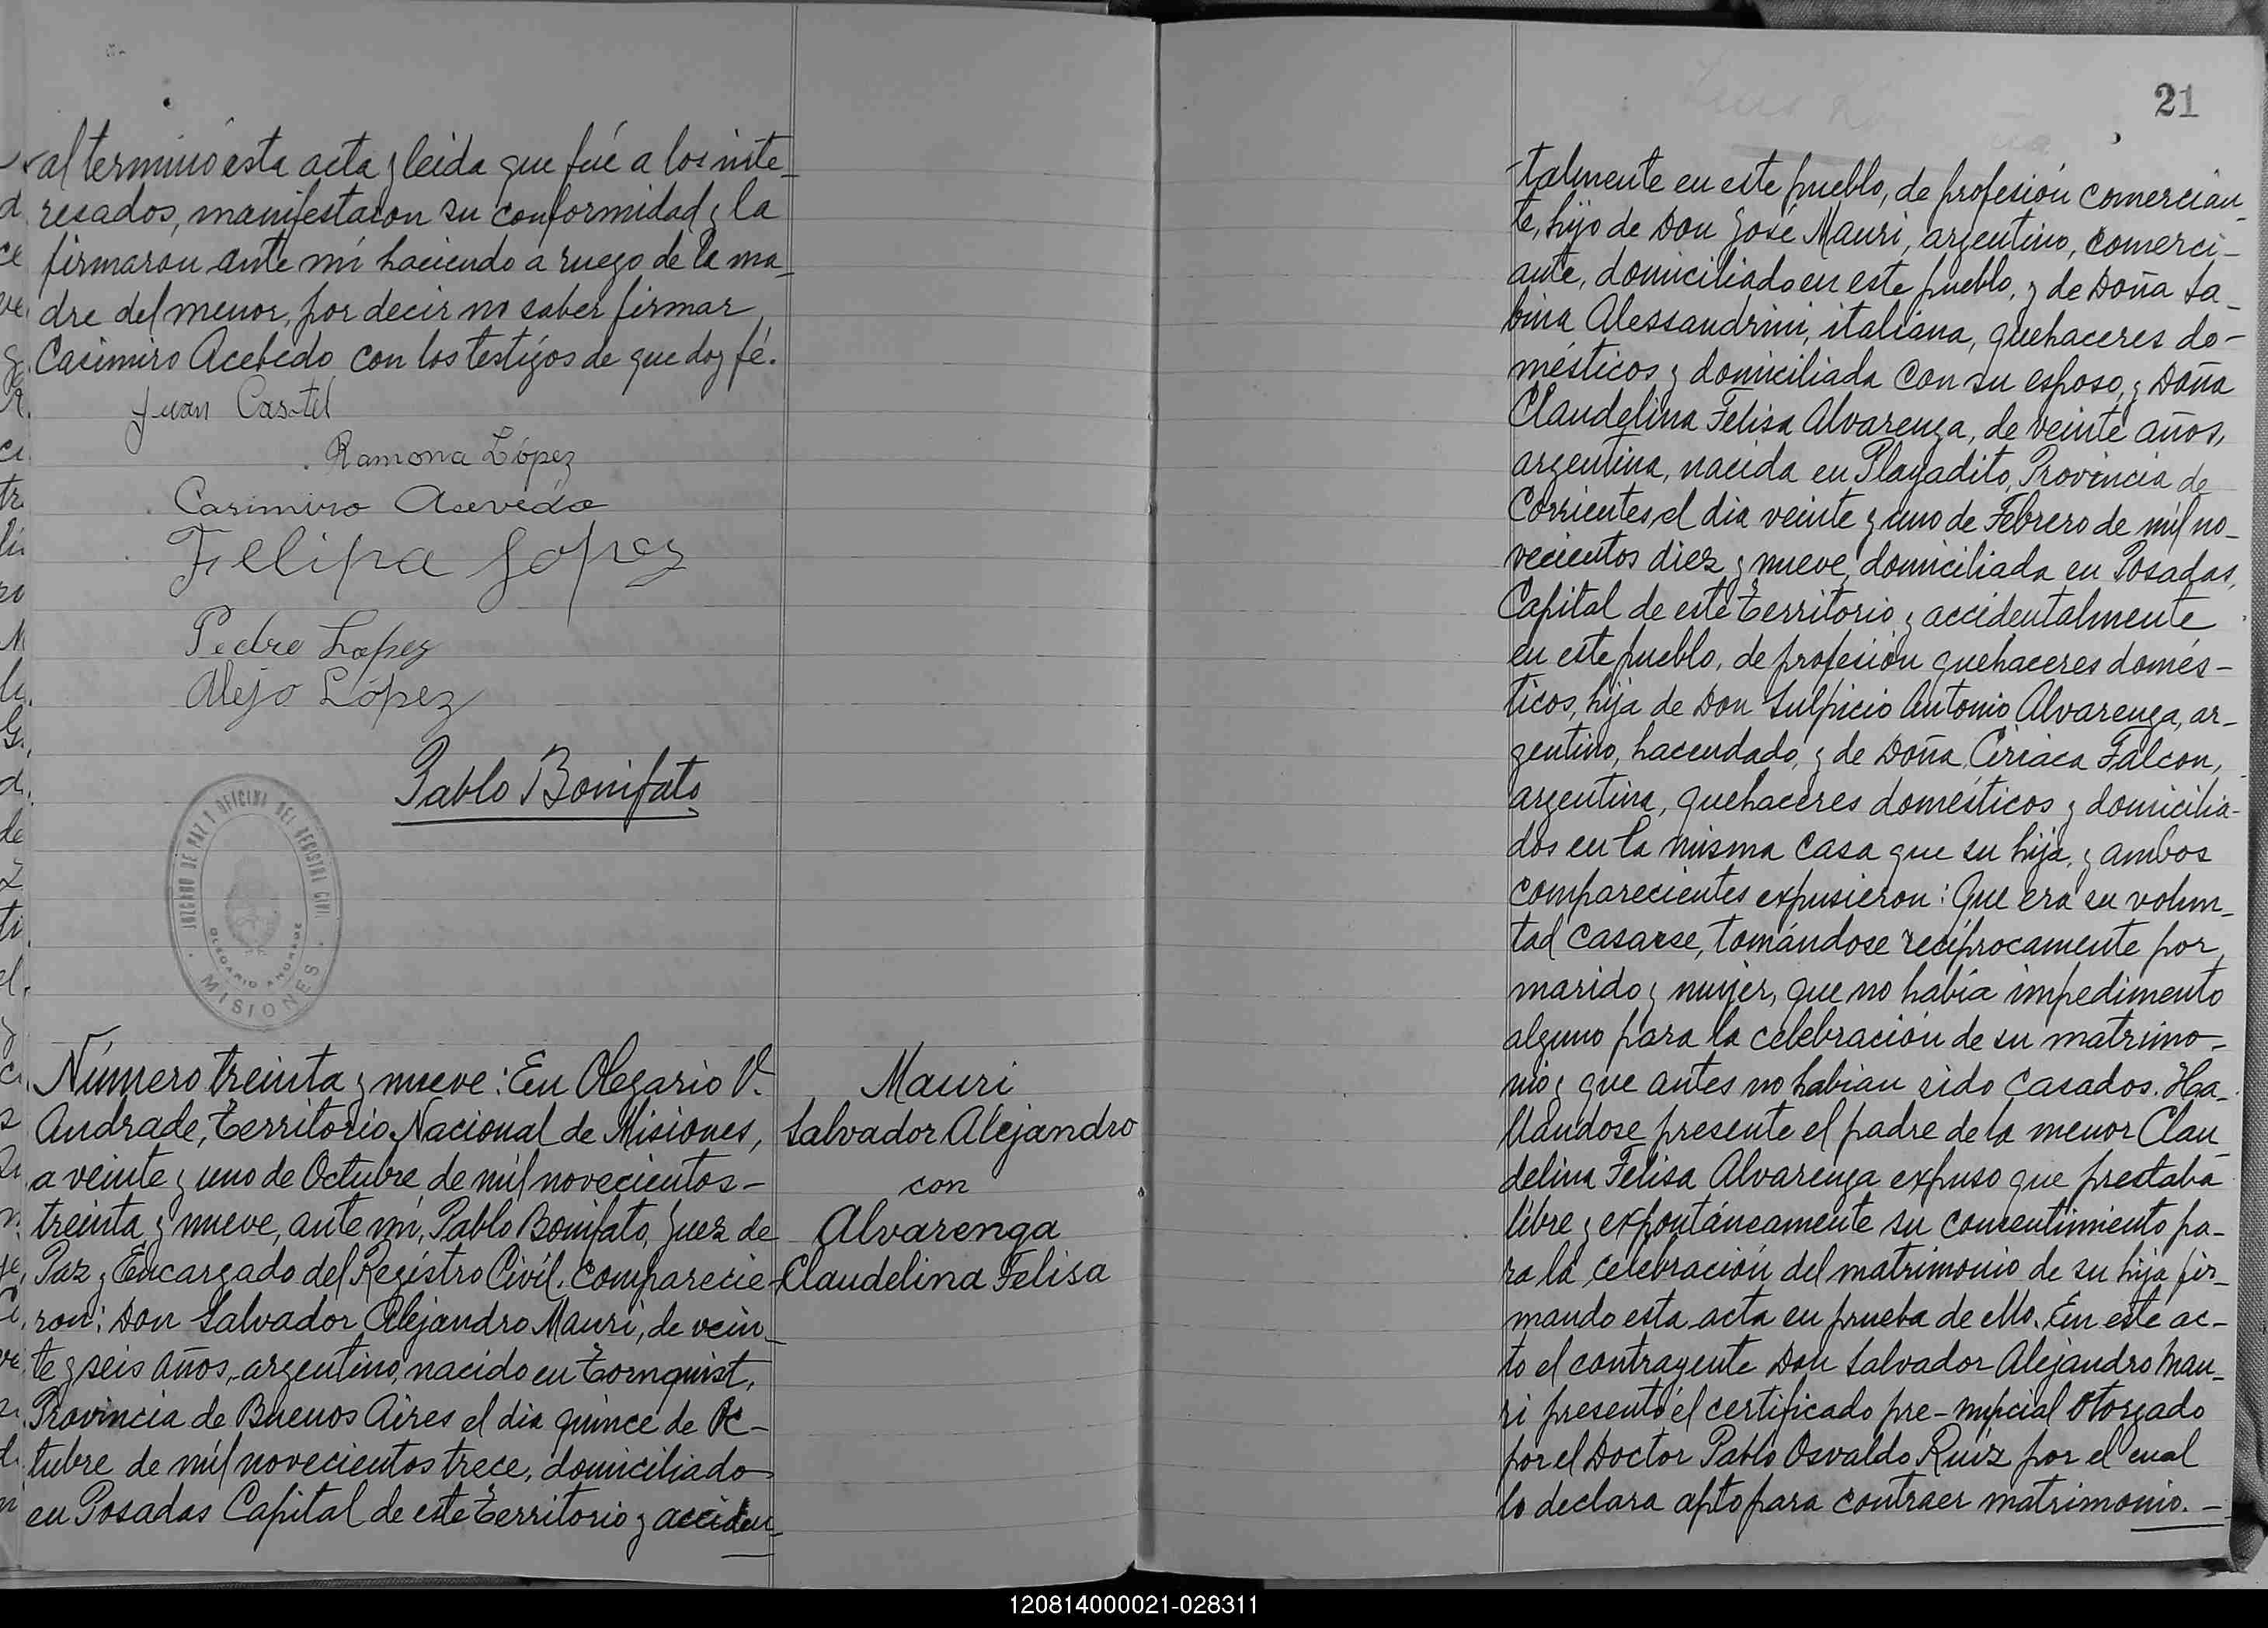 al terminó esta acta y leida que fué a los inte_
resados, manifestaron su conformidad y la
firmaron ante mí haciendo a ruego de la ma_
dre del menor, por decir no saber firmar,
Casimiro Acebedo con los testigos de que doy fé.
Juan Castel
Ramona López
Casimiro Asevedo
Felipa Lopez
Pedro Lopez
Alejo López
Pablo Bonifato
JUZGADO DE PAZ Y OFICINA DEL REGISTRO CIVIL
OLEGARIO ANDRADE
MISIONES
Número treinta y nueve: En Olegario V.
Andrade, Territorio Nacional de Misiones,
a veinte y uno de Octubre de mil novecientos-
treinta y nueve, ante mí, Pablo Bonifato, Juez de
Paz y Encargado del Registro Civil, comparecie-
ron: Don Salvador Alejandro Mauri, de vein_
te y seis años, argentino, nacido en Tornquist,
Provincia de Buenos Aires el dia quince de Oc-
tubre de mil novecientos trece, domiciliado
en Posadas Capital de este Territorio y acciden_
Mauri
Salvador Alejandro
con
Alvarenga
Claudelina Felisa
21
-talmente en este pueblo, de profesión comercian_
te, hijo de Don José Mauri, argentino, comerci_
ante, domiciliado en este pueblo, y de Doña Sa_
bina Alessandrini, italiana, quehaceres do-
mésticos y domiciliada con su esposo, y Doña
Claudelina Felisa Alvarenga, de veinte años,
argentina, nacida en Playadito, Provincia de
Corrientes, el dia veinte y uno de Febrero de mil no_
vecientos diez y nueve, domiciliada en Posadas,
Capital de este Territorio y accidentalmente
en este pueblo, de profesión quehaceres domés-
ticos, hija de Don Sulpicio Antonio Alvarenga, ar-
gentino, hacendado, y de Doña Ciriaca Falcon,
argentina, quehaceres domésticos y domicilia-
dos en la misma casa que su hija, y ambos
comparecientes expusieron: Que era su volun_
tad casarse, tomándose recíprocamente por
marido y mujer, que no había impedimento
alguno para la celebración de su matrimo-
nio y que antes no habian sido casados. Ha_
llándose presente el padre de la menor Clau_
delina Felisa Alvarenga expuso que prestaba
libre y expontáneamente su concentimiento pa-
ra la celebración del matrimonio de su hija fir_
mando esta acta en prueba de ello. En este ac-
to el contrayente Don Salvador Alejandro Mau_
ri presentó el certificado pre-nupcial otorgado
por el Doctor Pablo Osvaldo Ruiz por el cual
lo declara apto para contraer matrimonio. -
120814000021-028311